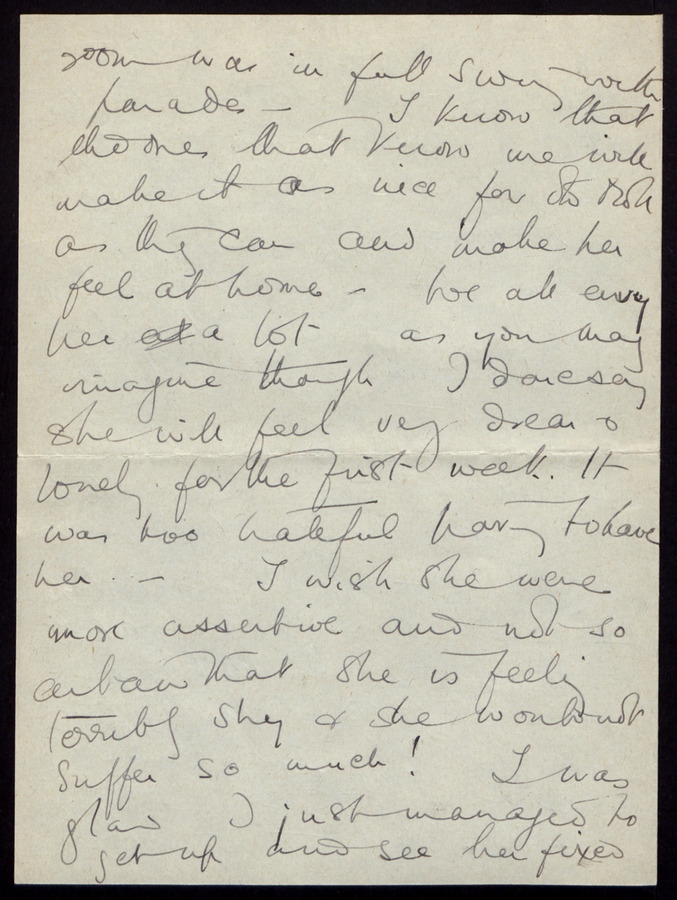 room was in full swing with
parades — I know that
the ones that know me will
make it as nice for
as they can and make her
feel at home — We all envy
her a lot as you may
imagine though I daresay
she will feel very drear &
lonely for the first week. It
was too hateful having to have
her — I wish she were
more assertive and not so
that she is feeling
terribly shy & she would not
suffer so much! I was
glad I just managed to
get up and see her fixed